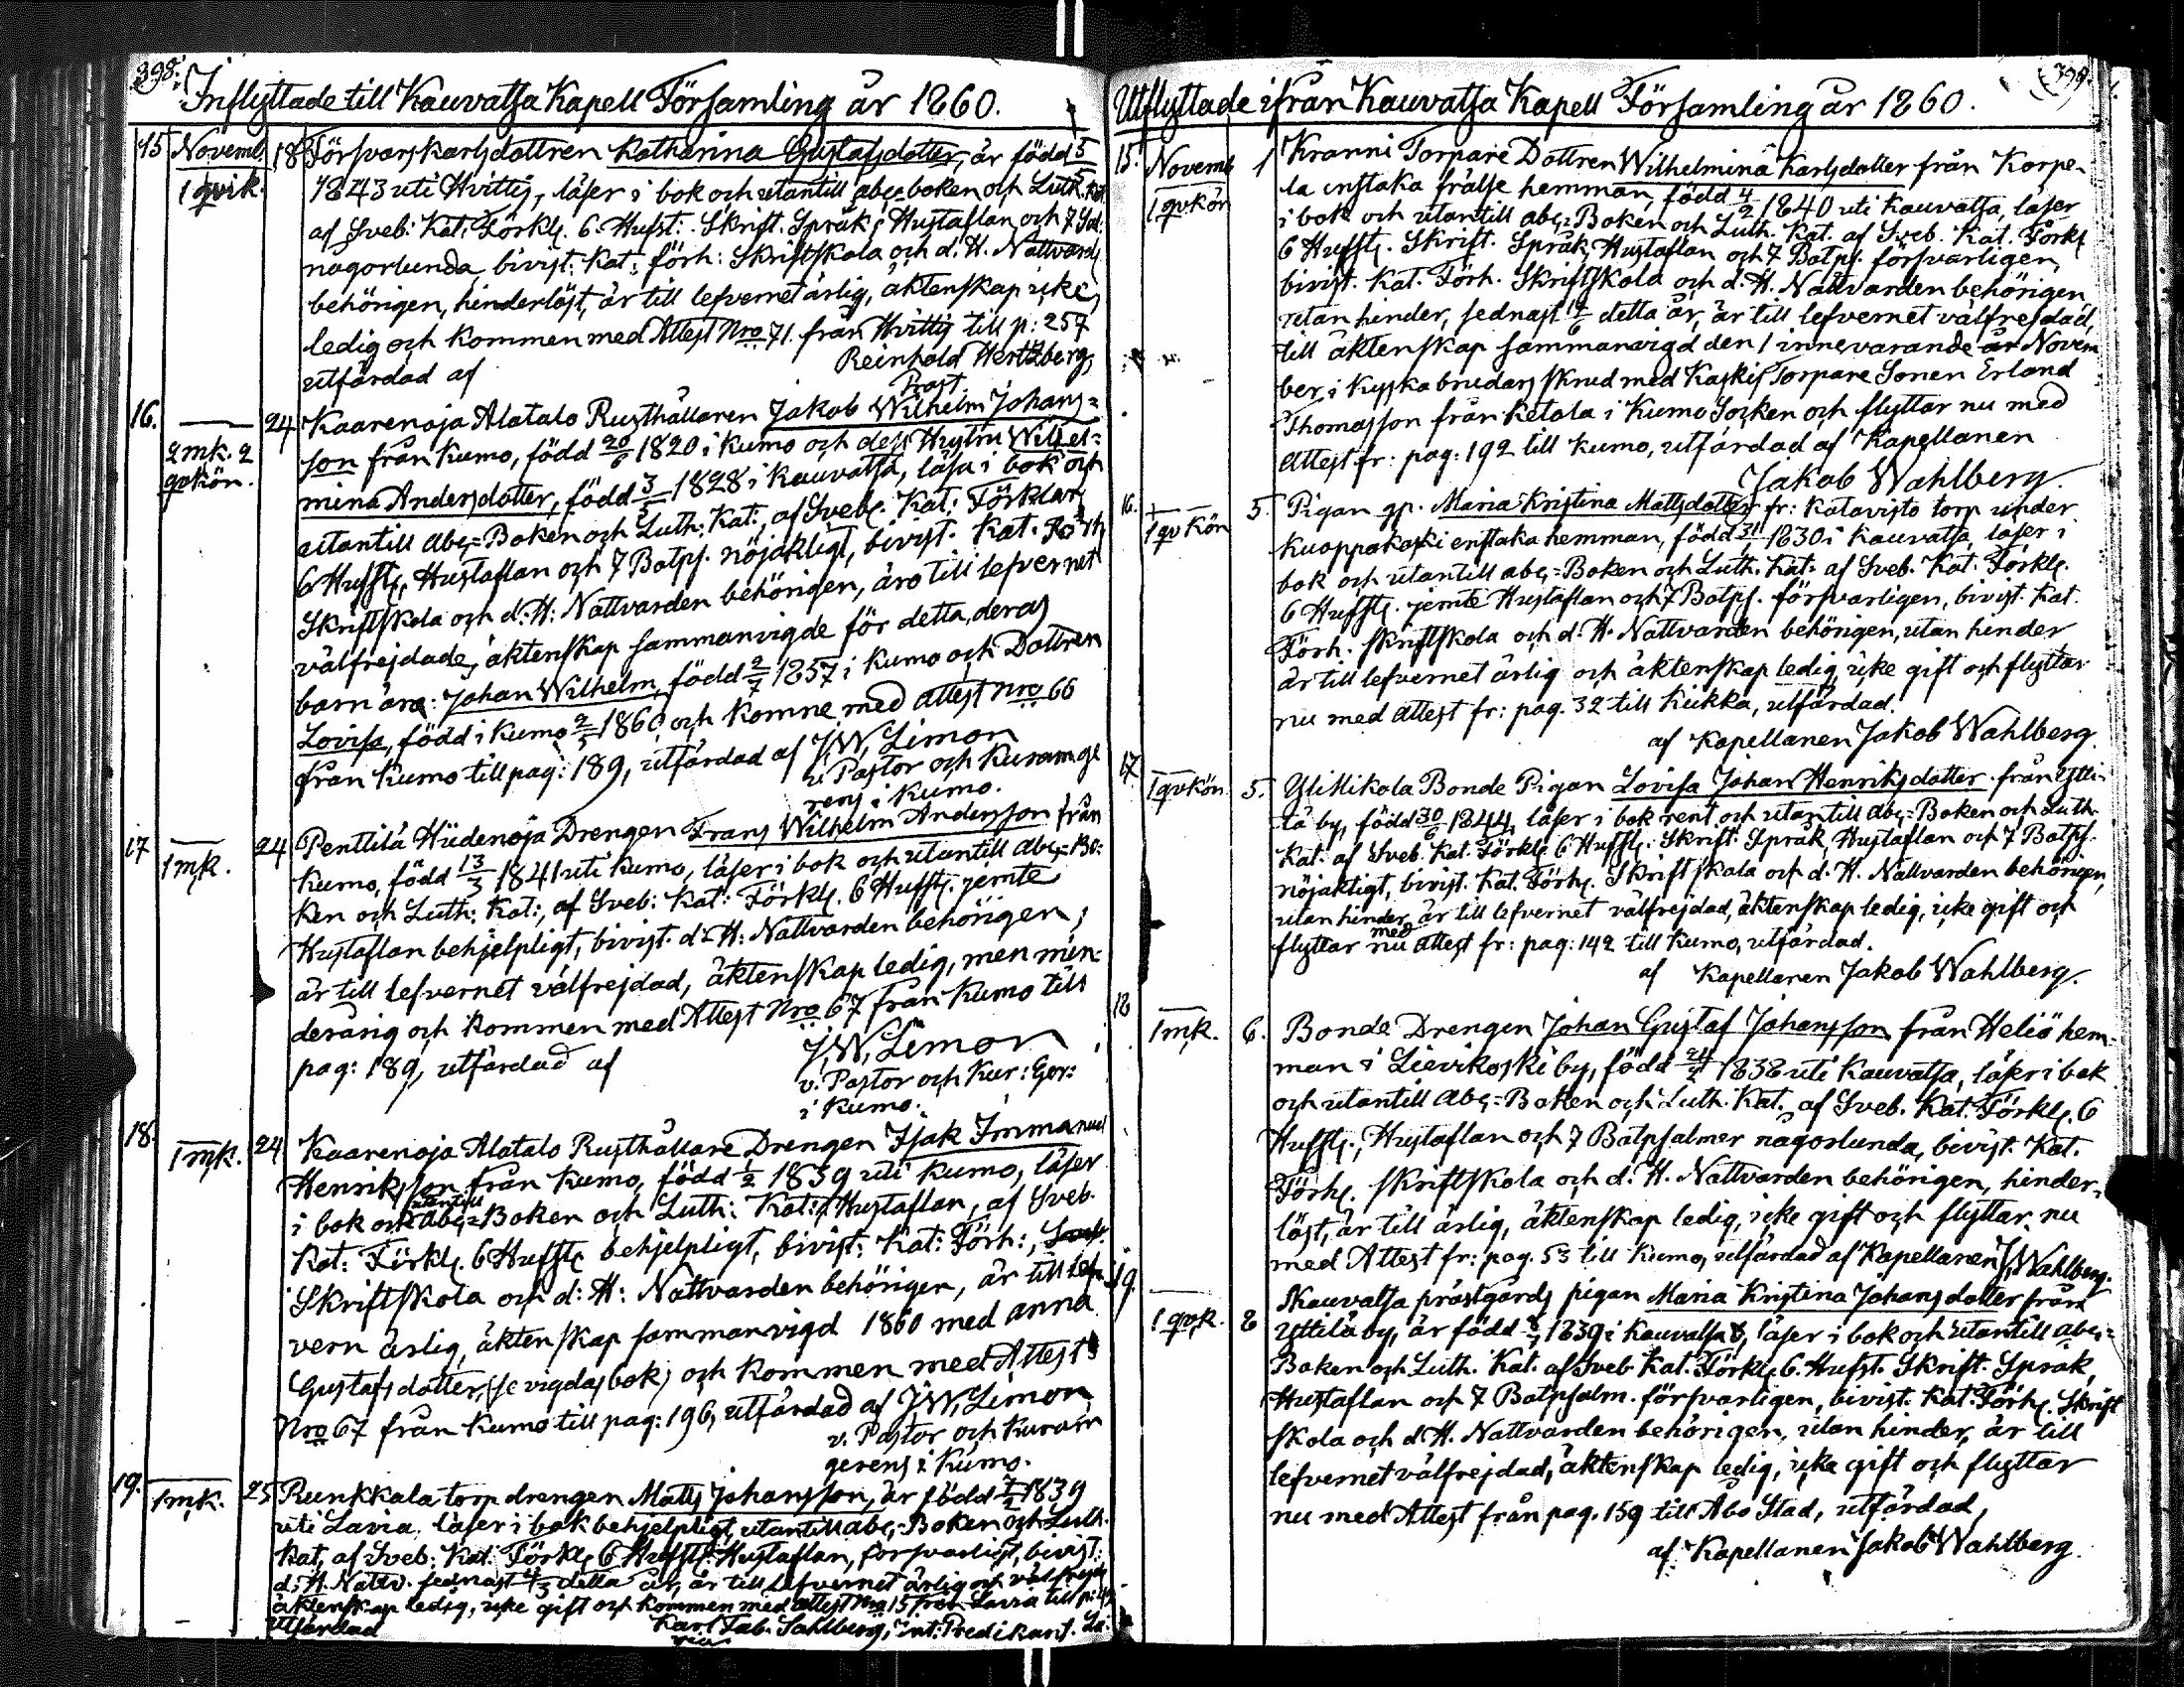 398.
Inflyttade till Kauvatsa Kapell Församling år 1860.
15 Novemb. 18 Försvarskarlsdottren Katharina Gustafsdotter, är född 5/5
1 qvik. 1843 uti Hvittis, läser i bok och utantill abc-boken och Luth. Kat.
af Sveb: Kat: Förkl. 6. Hufst: Skrift. Språk, Hustaflan och 7
någorlunda, bivist: Kat: förh: Skriftskola och d. H. Nattvard
behörigen, hinderlöst, är till lefvernet ärlig, äktenskap icke
ledig och kommen med Attest Nro 71. från Hvittis till p: 257
utfärdad af Reinhold Hertzberg,
Prost.
16. 24 Kaarenoja Alatalo Rusthållaren Jakob Wilhelm Johans=
2 mk. 2 son från Kumo, född 20/6 1820 i Kumo och dess Hustru Wilhel=
qvkön. mina Andersdotter, född 3/5 1828 i Kauvatsa, läsa i bok och
utantill abc=Boken och Luth: Kat:, af Sveb. Kat: Förklar
6 Hufst, Hustaflan och 7 Botps. nöjaktigt, bivist. Kat. Förh
Skriftskola och d: H: Nattvarden behörigen, äro till lefvernet
välfrejdade, äktenskap sammanvigde för detta, deras
barn äro: Johan Wilhelm, född 2/7 1857 i Kumo och Dottren
Lovisa, född i Kumo 2/5 1860, och komne med attest Nro 66
från Kumo till pag: 189, utfärdad af J. W. Limon
v. Pastor och Kuramge
rens i Kumo.
17 24 Penttilä Hiidenoja Drengen Frans Wilhelm Andersson från
1 mk. Kumo, född 13/3 1841 uti Kumo, läser i bok och utantill abc=Bo=
ken och Luth: Kat:, af Sveb: Kat: Förkl. 6 Hufst. jemte
Hustaflan behjelpligt, bivist. d: H: Nattvarden behörigen,
är till lefvernet välfrejdad, äktenskap ledig, men min=
derårig och kommen med Attest Nro 67 från Kumo till
pag: 189, utfärdad af J. W. Limon
v. Pastor och Kur: Ger:
i Kumo.
18. 1 mk. 24 Kaarenoja Alatalo Rusthållare Drengen Isak Immanuel
Henriksson från Kumo, född 1/2 1839 uti Kumo, läser
i bok och utantill abc=Boken och Luth: Kat: Hustaflan, af Sveb.
Kat: Förkl. 6 Hufst behjelpligt, bivist: Kat: Förh:,
Skriftskola och d: H: Nattvarden behörigen, är till lef
vern ärlig, äktenskap sammanvigd 1860 med Anna
Gustafsdotter, (se vigdas bok) och kommen med Attest
Nro 67 från Kumo till pag: 196, utfärdad af J. W. Limon
v. Pastor och Kuram
gerens i Kumo.
19. 1 mk. 25 Runkkala torp drengen Matts Johansson, är född 1839
uti Lavia, läser i bok behjelpligt, utantill abc=Boken och Luth.
Kat, af Sveb: Kat: Förkl 6 Hufst: Hustaflan, försvarligt, bivist:
d: H. Nattv. sednast detta år, är till lefvernet ärlig och välfrejd
äktenskap ledig, icke gift och kommen med attest Nro 15 från Lavia till
utfärdad Karl Sahlberg, int: Predikant. La:
via
399.
Utflyttade ifrån Kauvatsa Kapell Församling år 1860.
15. Novemb 1 Kranni Torpare Dottren Wilhelmina Karlsdotter från Korpe-
1 qvkön la enstaka frälse hemman, född 4/2 1840 uti Kauvatsa, läser
i bok och utantill abc=Boken och Luth. Kat. af Sveb. Kat. Förkl
6 Hufst. Skrift. Språk, Hustaflan och 7 Botps. försvarligen,
bivist. Kat. Förh. Skriftskola och d: H. Nattvarden behörigen
utan hinder, sednast detta år, är till lefvernet välfrejdad,
till äktenskap sammanvigd den 1 innevarande år Novem
ber, i kyska brudars skrud med Kaskis Torpare Sonen Erland
Thomasson från Ketola i Kumo Socken och flyttar nu med
Attest fr: pag: 192 till Kumo, utfärdad af Kapellanen
Jakob Wahlberg.
16. 5. Pigan gp. Maria Kristina Mattsdotter fr: Katavisto torp under
1 qvkön Kuoppakoski enstaka hemman, född 1830 i Kauvatsa, läser i
bok och utantill abc=Boken och Luth. Kat. af Sveb. Kat. Förkl.
6 Hufst. jemte Hustaflan och 7 Botps. försvarligen, bivist. Kat.
Förh. Skriftskola och d. H. Nattvarden behörigen, utan hinder
är till lefvernet ärlig och äktenskap ledig, icke gift och flyttar
nu med attest fr: pag. 32 till Kiikka, utfärdad.
af Kapellanen Jakob Wahlberg.
17 1 qvkön 5. YliMikola Bonde Pigan Lovisa Johan Henriksdotter från Ytti-
lä by, född 30/6 1844, läser i bok rent och utantill abc=Boken och Luth.
Kat: af Sveb. Kat. Förkl 6 Hufst. Skrift. Språk, Hustaflan och 7 Botps.
nöjaktigt, bivist. Kat. Förh. Skriftskola och d. H. Nattvarden behörigen,
utan hinder, är till lefvernet välfrejdad, äktenskap ledig, icke gift och
flyttar nu med attest fr: pag: 142 till Kumo, utfärdad.
af Kapellanen Jakob Wahlberg.
18 1 mk. 6. Bonde Drengen Johan Gustaf Johansson från Heliö hem-
man i Lievikoski by, född 1838 uti Kauvatsa, läser i bok
och utantill abc=Boken och Luth. Kat. af Sveb. Kat. Förkl. 6
Hufst., Hustaflan och 7 Botpsalmer någorlunda, bivist. Kat.
Förh. Skriftskola och d. H. Nattvarden behörigen, hinder=
löst, är till ärlig, äktenskap ledig, icke gift och flyttar nu
med Attest fr: pag. 53 till Kumo, utfärdad af Kapellanen J. Wahlberg.
19. Kauvatsa prästgårds pigan Maria Kristina Johansdotter från
1 qvk. 8 Yttilä by, är född 1839 i Kauvatsa, läser i bok och utantill abc=
Boken och Luth. Kat. af Sveb Kat. Förkl. 6. Hufst. Skrift. Språk,
Hustaflan och 7 Botpsalm. försvarligen, bivist. Kat: Förh. Skrift
skola och d. H. Nattvarden behörigen, utan hinder, är till
lefvernet välfrejdad, äktenskap ledig, icke gift och flyttar
nu med Attest från pag. 159 till Åbo Stad, utfärdad,
af Kapellanen Jakob Wahlberg.